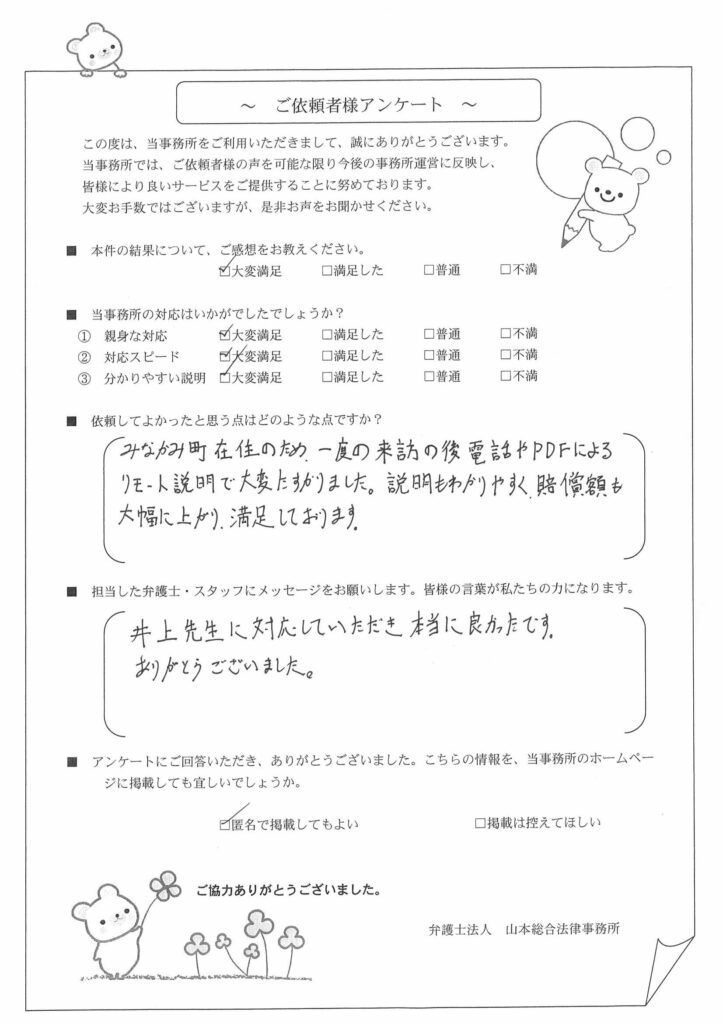 ～　ご依頼者様アンケート　～
この度は、当事務所をご利用いただきまして、誠にありがとうございます。
当事務所では、ご依頼者様の声を可能な限り今後の事務所運営に反映し、
皆様により良いサービスをご提供することに努めております。
大変お手数ではございますが、是非お声をお聞かせください。
■　本件の結果について、ご感想をお教えください。
☑大変満足　□満足した　□普通　□不満
■　当事務所の対応はいかがでしたでしょうか？
①　親身な対応　☑大変満足　□満足した　□普通　□不満
②　対応スピード　☑大変満足　□満足した　□普通　□不満
③　分かりやすい説明　☑大変満足　□満足した　□普通　□不満
■　依頼してよかったと思う点はどのような点ですか？
みなかみ町在住のため、一度の来訪の後電話やPDFによる
リモート説明で大変たすかりました。説明もわかりやすく、賠償額も
大幅に上がり、満足しております。
■　担当した弁護士・スタッフにメッセージをお願いします。皆様の言葉が私たちの力になります。
井上先生に対応していただき本当に良かったです。
ありがとうございました。
■　アンケートにご回答いただき、ありがとうございました。こちらの情報を、当事務所のホームペー
ジに掲載しても宜しいでしょうか。
☑匿名で掲載してもよい　□掲載は控えてほしい
ご協力ありがとうございました。
弁護士法人　山本総合法律事務所